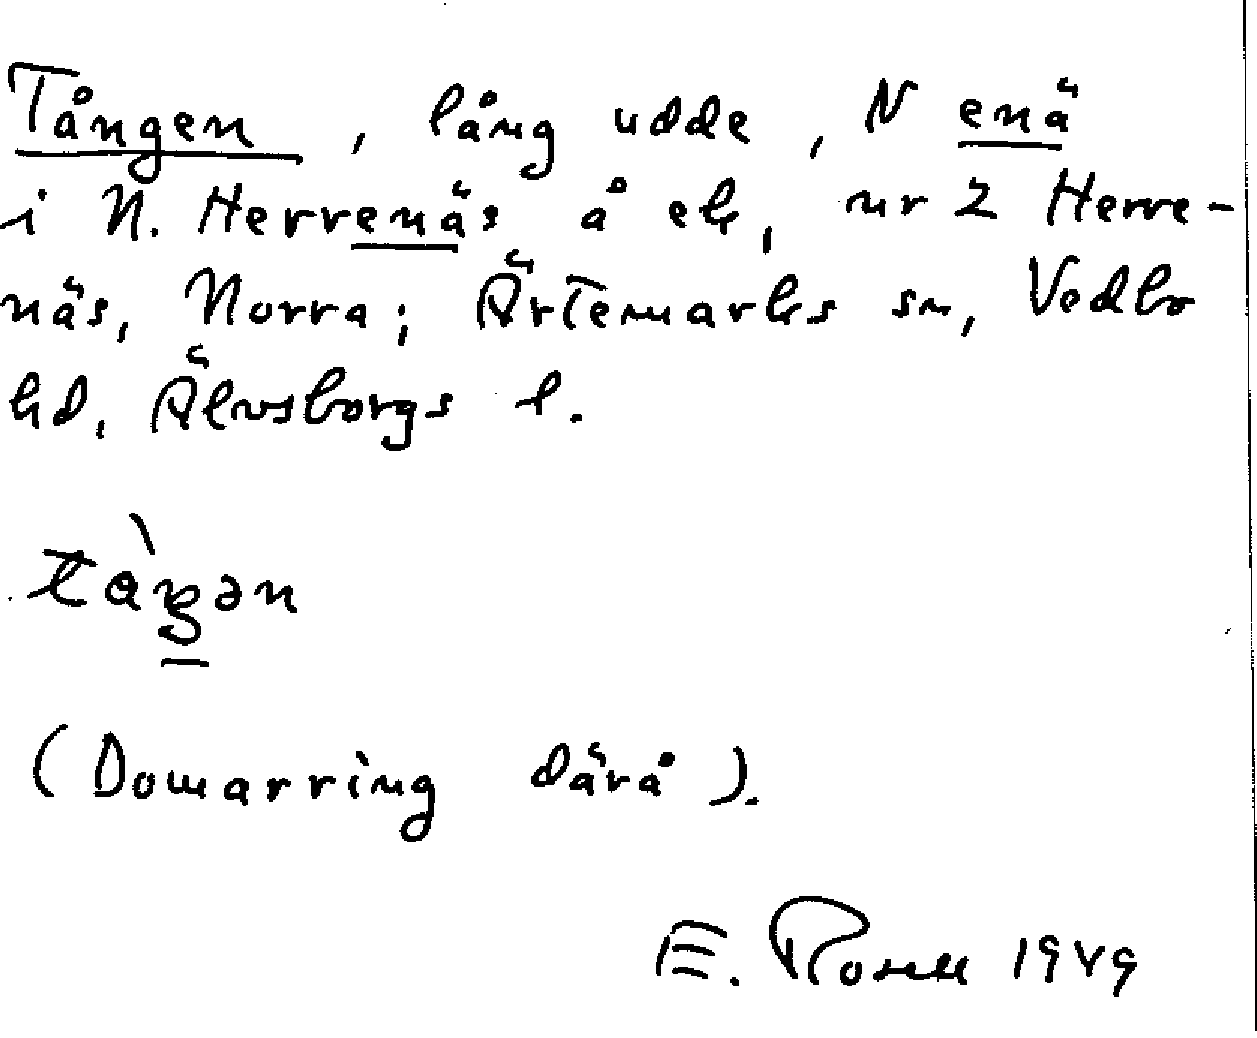 Tången, lång udde, N enä
i N. Herrenäs å ek, nr 2 Herre-
näs, Norra; Ärtemarks sn, Vedbo
hd, Älvsborgs l.
(Domarring därå).
E. Rosell 1949